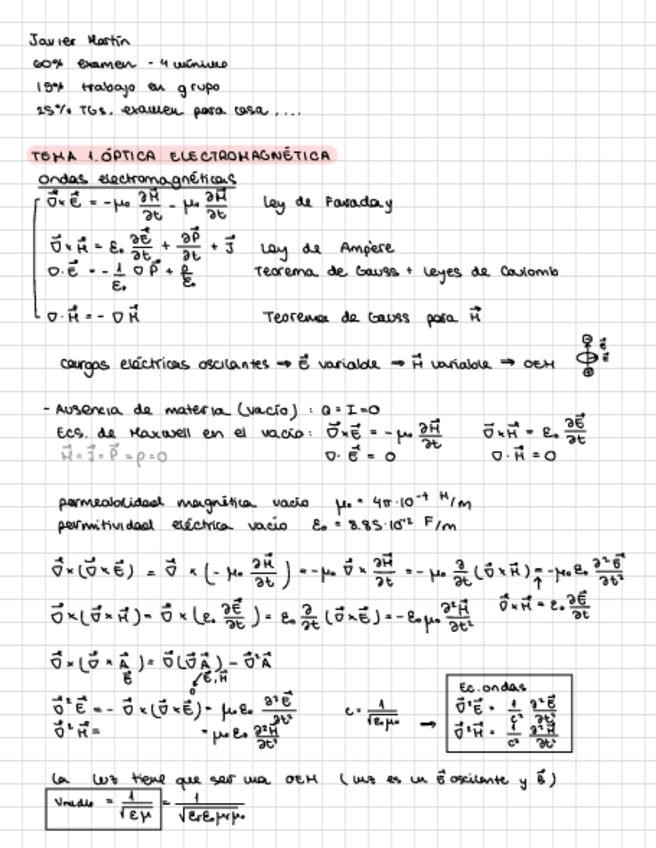 Javier Martín
60% examen - 4 mínimo
15% trabajo en grupo
25% TGs, examen para casa ....
TEMA 1. ÓPTICA ELECTROMAGNÉTICA
Ondas electromagnéticas
∇⃗×E⃗ = -μ₀ ∂H⃗/∂t - μ₀ ∂M⃗/∂t Ley de Faraday
∇⃗×H⃗ = ε₀ ∂E⃗/∂t + ∂P⃗/∂t + J⃗ Ley de Ampere
∇·E⃗ = - 1/ε₀ ∇P⃗ + ρ/ε₀ Teorema de Gauss + Leyes de Coulomb
∇·H⃗ = - ∇M⃗ Teorema de Gauss para H⃗
cargas eléctricas oscilantes → E⃗ variable → H⃗ variable → OEM
- Ausencia de materia (vacío) : Q = I = 0
Ecs. de Maxwell en el vacío: ∇⃗×E⃗ = -μ₀ ∂H⃗/∂t ∇⃗×H⃗ = ε₀ ∂E⃗/∂t
M⃗ = J⃗ = P⃗ = ρ = 0 ∇·E⃗ = 0 ∇·H⃗ = 0
permeabilidad magnética vacío μ₀ = 4π·10⁻⁷ H/m
permitividad eléctrica vacío ε₀ = 8.85·10⁻¹² F/m
∇⃗×(∇⃗×E⃗) = ∇⃗ × (-μ₀ ∂H⃗/∂t) = -μ₀ ∇⃗× ∂H⃗/∂t = -μ₀ ∂/∂t (∇⃗×H⃗) = -μ₀ε₀ ∂²E⃗/∂t²
↑ ∇⃗×H⃗ = ε₀ ∂E⃗/∂t
∇⃗×(∇⃗×H⃗) = ∇⃗×(ε₀ ∂E⃗/∂t) = ε₀ ∂/∂t (∇⃗×E⃗) = -ε₀μ₀ ∂²H⃗/∂t²
∇⃗×(∇⃗×A⃗) = ∇⃗(∇⃗A⃗) - ∇²A⃗
E⃗ 0 E⃗,H⃗
∇²E⃗ = - ∇⃗×(∇⃗×E⃗) = μ₀ε₀ ∂²E⃗/∂t² c = 1/√(ε₀μ₀) →
∇²H⃗ = = μ₀ε₀ ∂²H⃗/∂t²
Ec. ondas
∇²E⃗ = 1/c² ∂²E⃗/∂t²
∇²H⃗ = 1/c² ∂²H⃗/∂t²
La luz tiene que ser una OEM (luz es un E⃗ oscilante y B⃗)
Vmedio = 1/√(εμ) = 1/√(εrε₀μrμ₀)